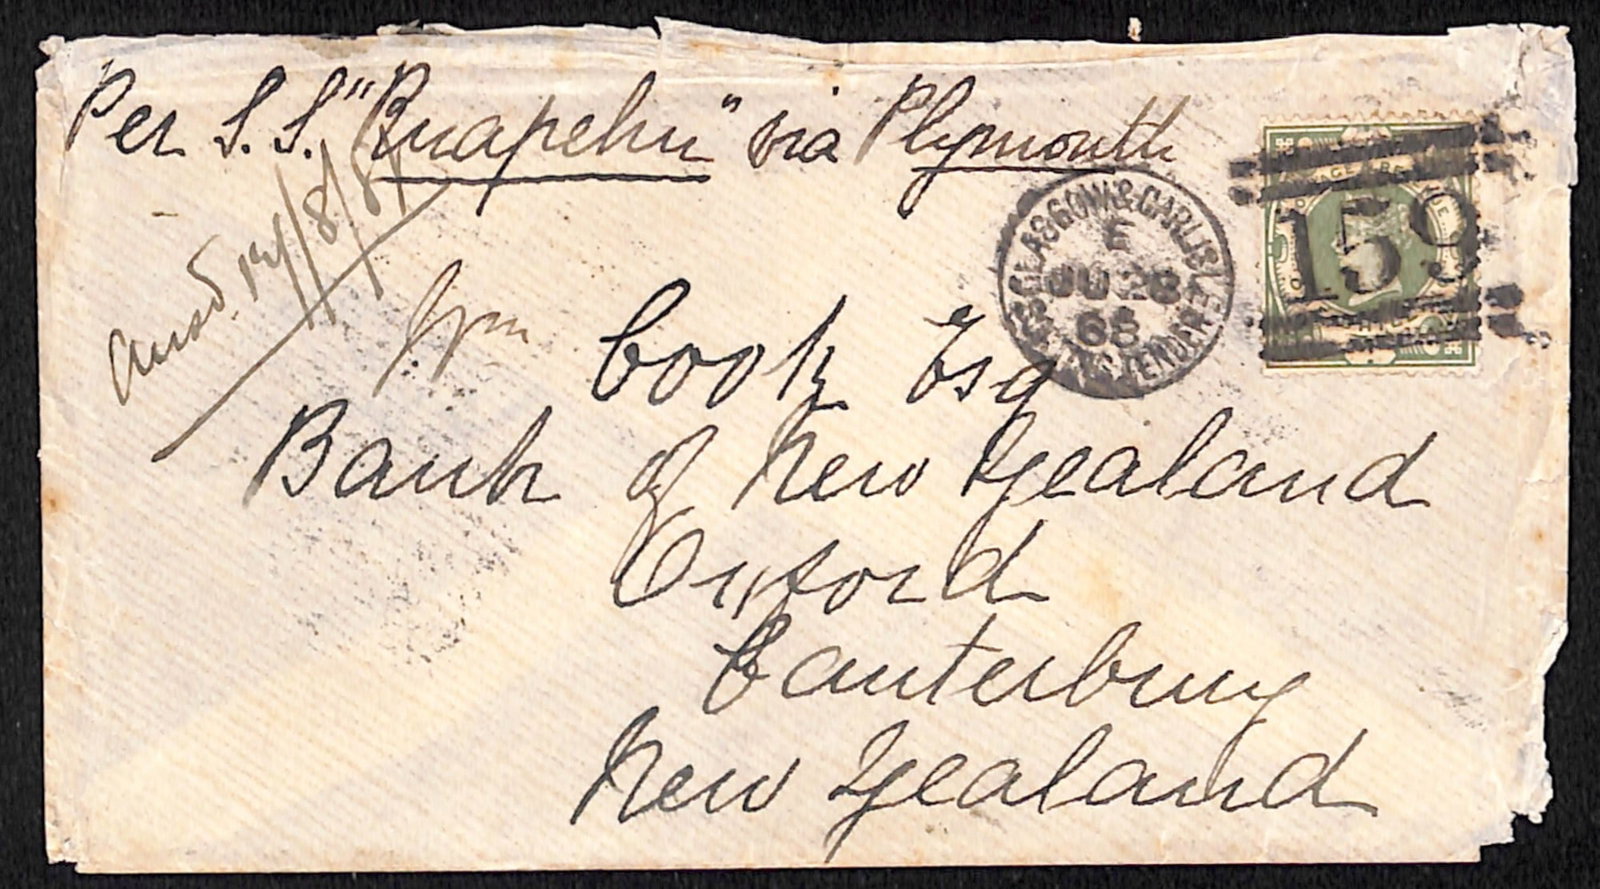 Per S.S. "Ruapehu" via Plymouth
GLASGOW & CARLISLE
E
JU 28
TENDER
159
Cook Esq
Bank of New Zealand
Oxford
Canterbury
New Zealand